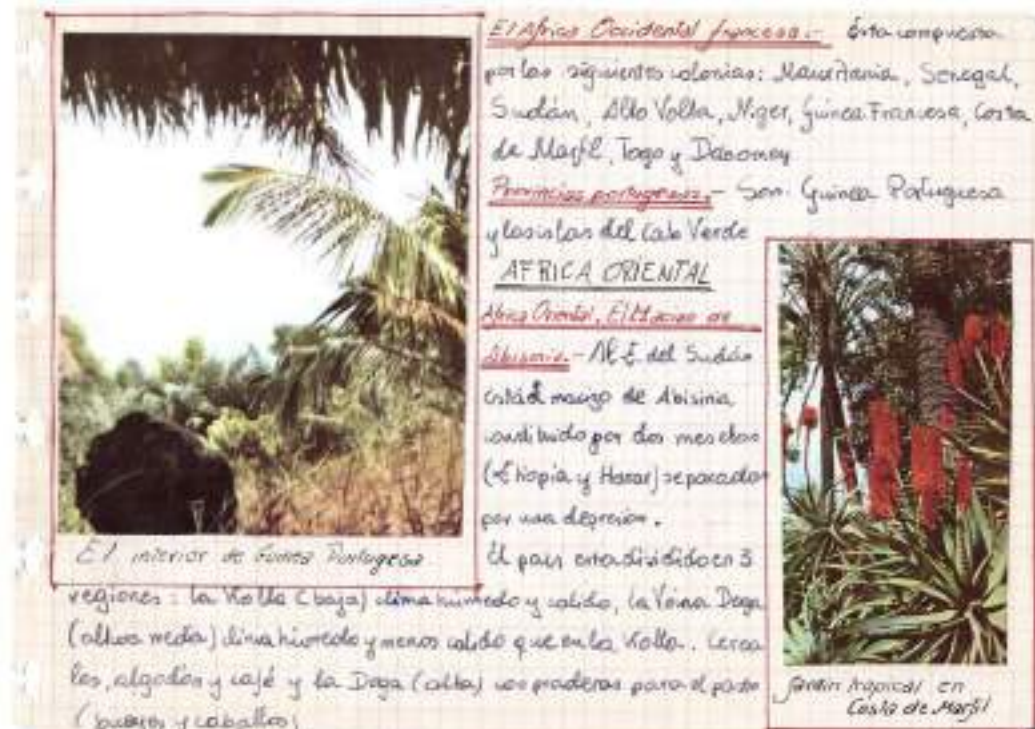 El Africa Occidental francesa.- Esta compuesta
por las siguientes colonias: Mauritania, Senegal,
Sudán, Alto Volta, Niger, Guinea Francesa, Costa
de Marfil, Togo y Dahomey
Provincias portuguesas.- Son: Guinea Portuguesa
y las islas del Cabo Verde
AFRICA ORIENTAL
Africa Oriental, El Macizo de
Abisinia.- Al E. del Sudán
está el macizo de Abisinia
constituido por dos mesetas
(Etiopia y Harar) separadas
por una depresion.
El pais esta dividido en 3
regiones: la Kolla (baja) clima húmedo y calido, la Voina Dega
(altura media) clima húmedo y menos calido que en la Kolla. Cerea
les, algodón y café y la Dega (alta) con praderas para el pasto
(bueyes y caballos)
El interior de Guinea Portugesa
Jardin tropical en
Costa de Marfil